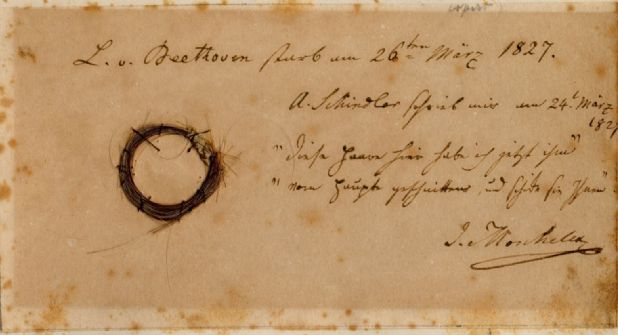 L. v. Beethoven starb am 26ten März 1827.
A. Schindler schrieb mir am 24t März
1827
"diese Haare hier habe ich jetzt ihm
" vom Haupte geschnitten, und schicke sie Ihnen
I. Moscheles